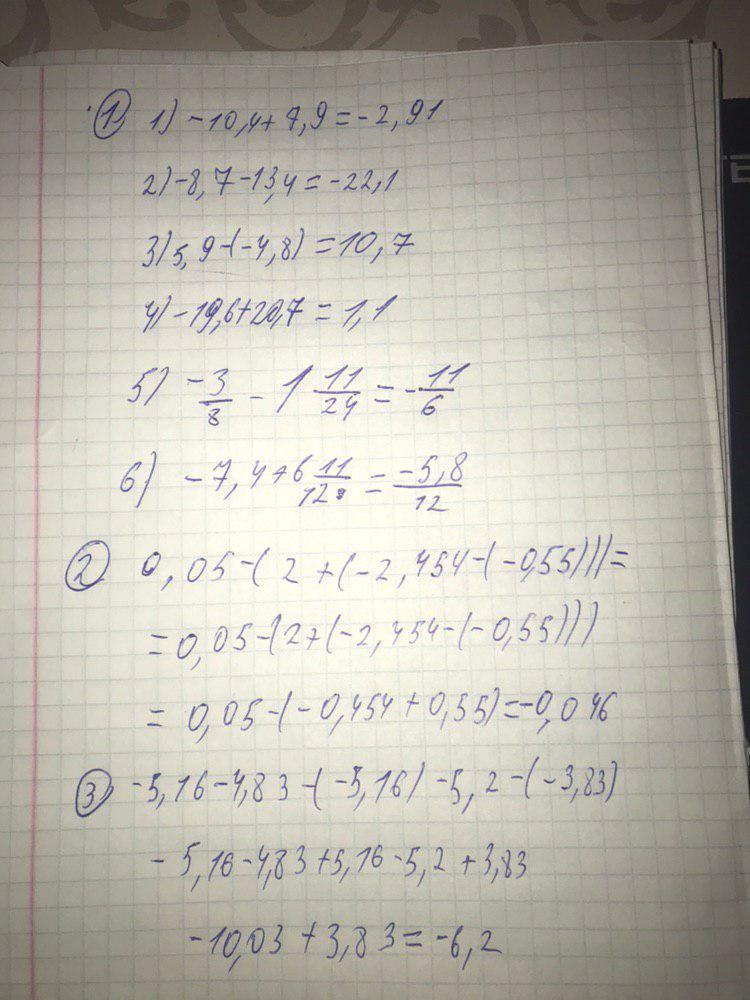 1) 1) -10,4+7,9=-2,91
2) -8,7-13,4=-22,1
3) 5,9-(-4,8)=10,7
4) -19,6+20,7=1,1
5) -3/8 - 1 11/24 = -11/6
6) -7,4+6 11/12 = -5,8/12
2 0,05-(2+(-2,454-(-0,55)))=
=0,05-(2+(-2,454-(-0,55)))
=0,05-(-0,454+0,55)=-0,046
3 -5,16-4,83-(-5,16)-5,2-(-3,83)
-5,16-4,83+5,16-5,2+3,83
-10,03+3,83=-6,2